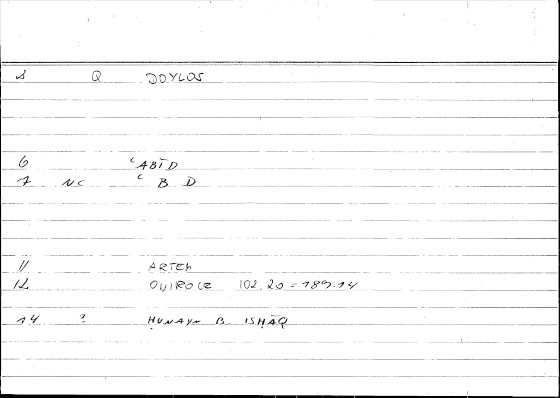 1 Q DOYLOS
6 ʿABĪD
7 NC ʿ B D
11 ARTEM
12 OVIROCE 102.20 = 189.14
14 ? ḤUNAYN B. ISḤĀQ